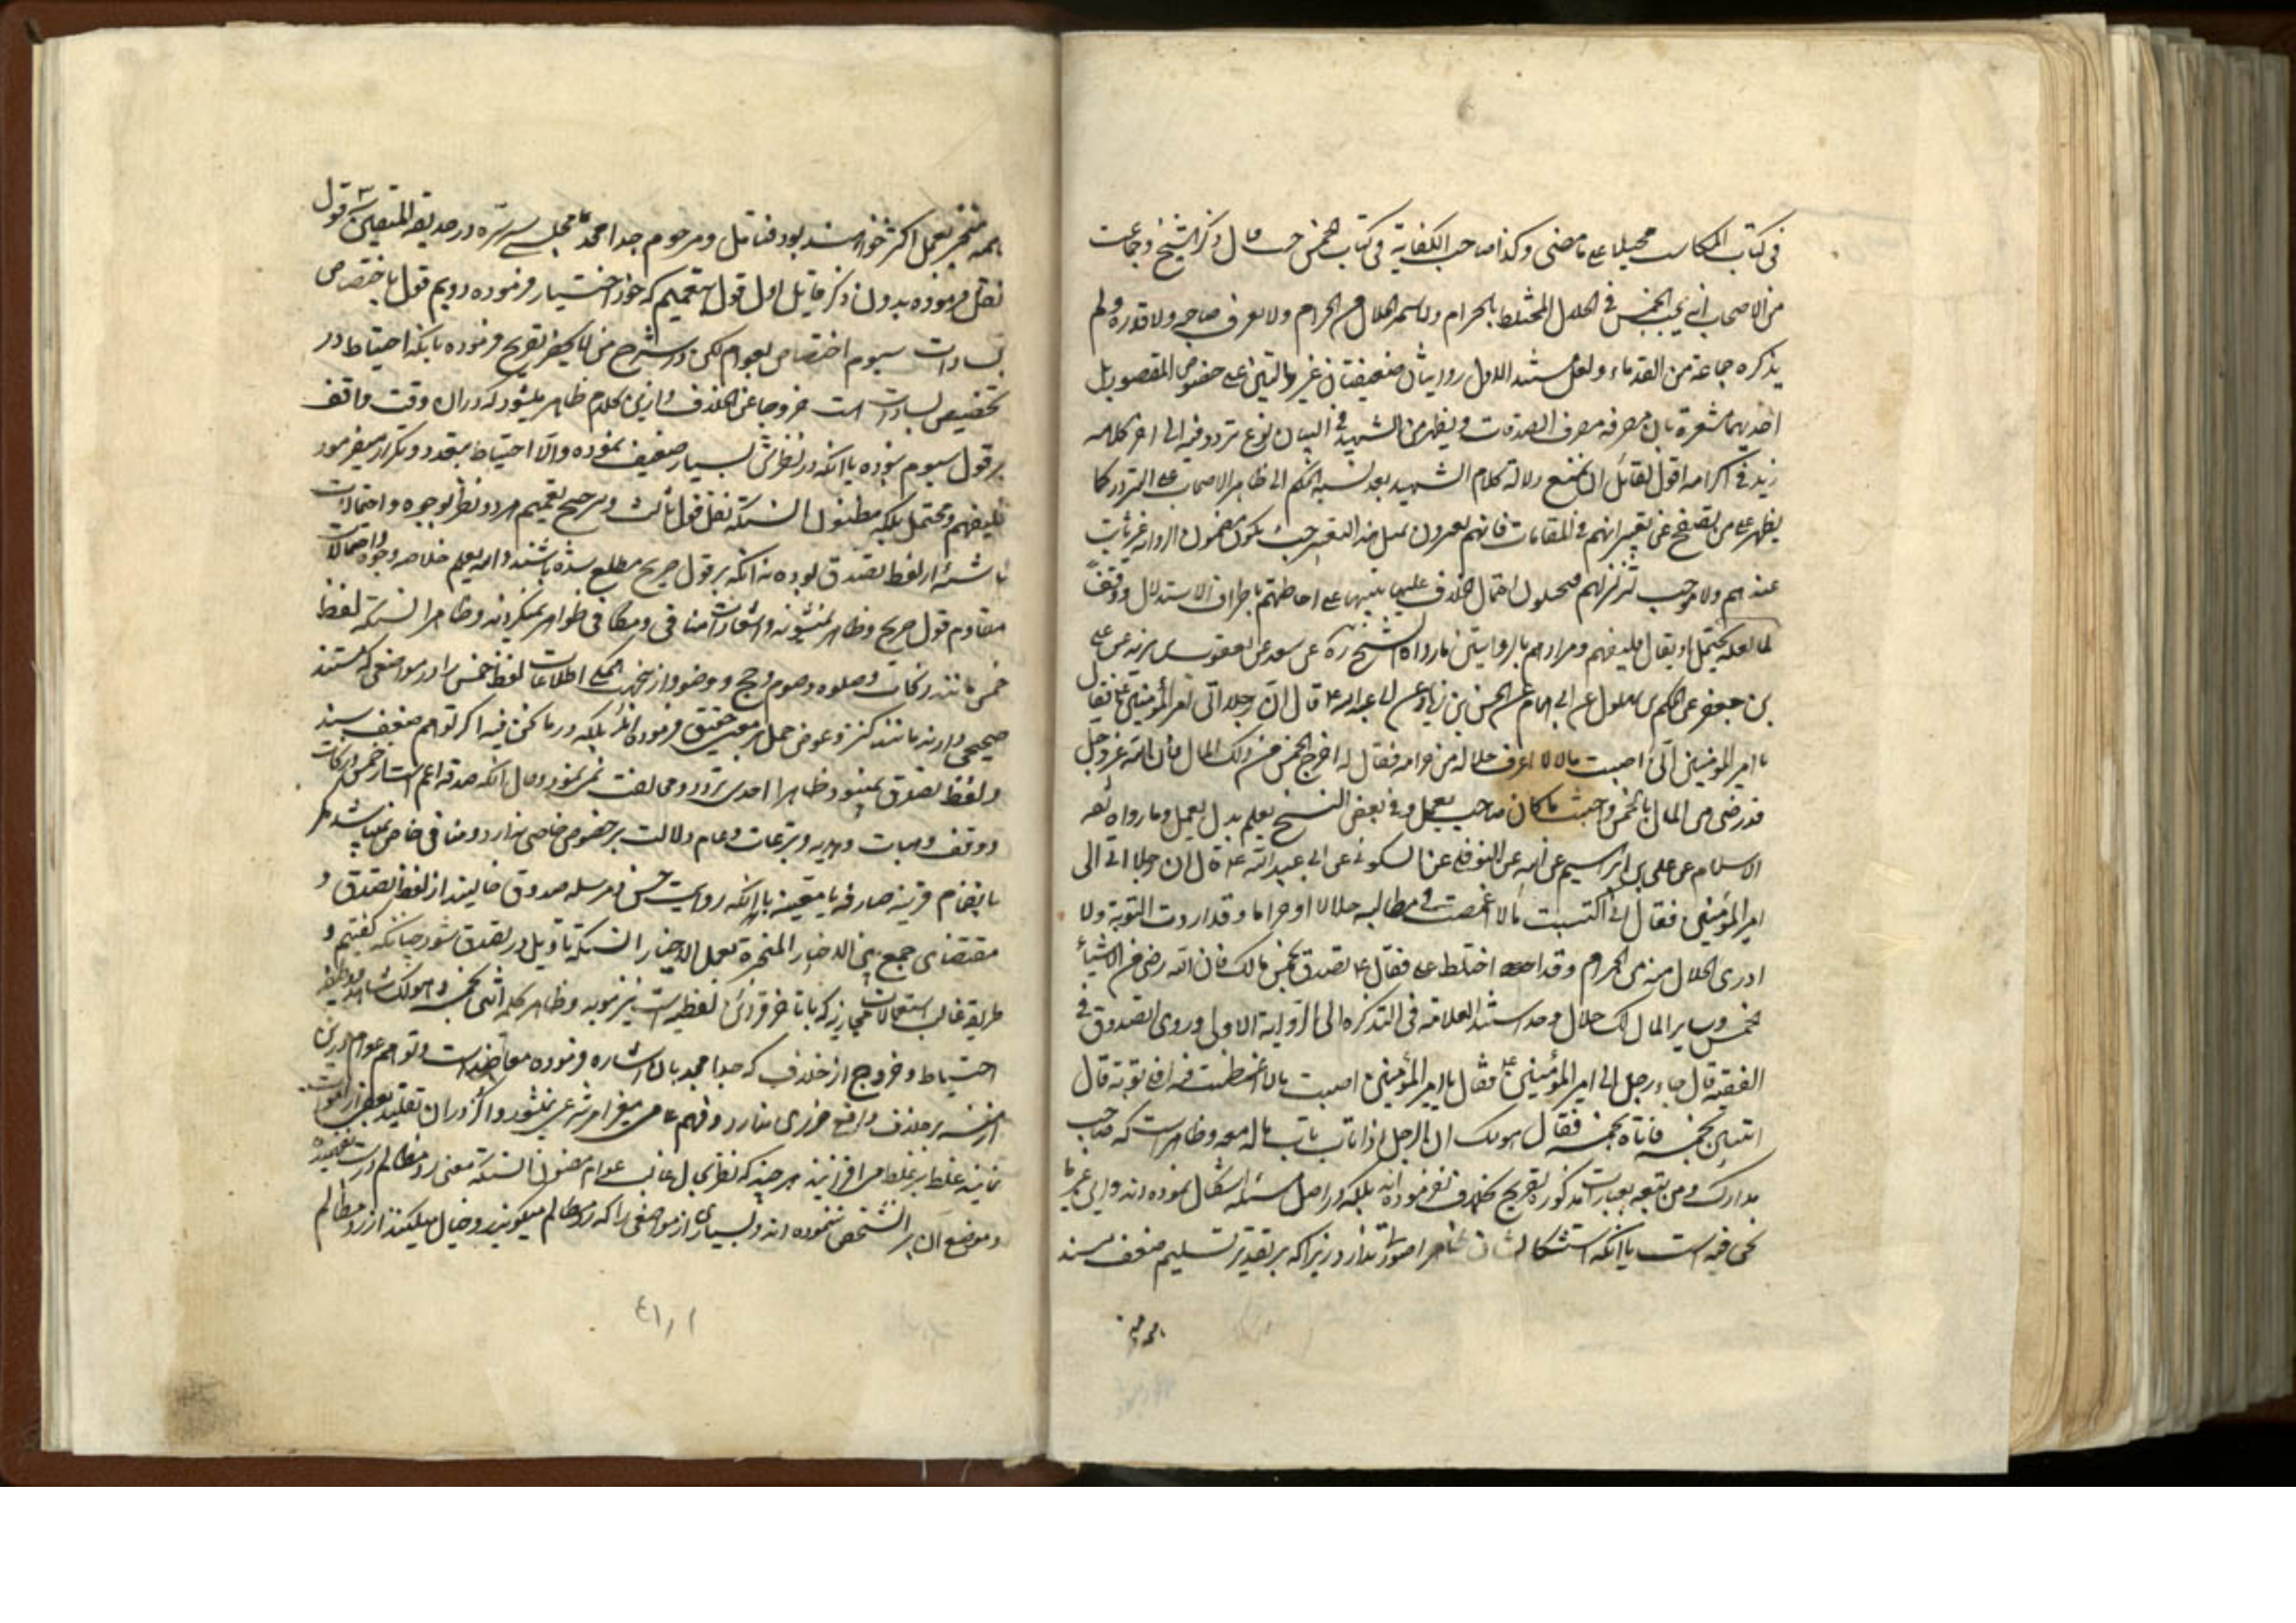 فی کتاب المکاسب محیلا علی ما مضی وکذا صاحب الکفایة فی کتاب الخمس حیث قال وذکر الشیخ وجماعت
من الاصحاب انه یجب الخمس فی الحلال المختلط بالحرام ولا یتمیز الحلال من الحرام ولا یعرف صاحبه ولا قدره ولم
یذکره جماعة من القدماء ولعل مستند الاول روایتان ضعیفتان غیر دالتین علی خصوص المقصود بل
احدیهما مشعرة بان مصرفه مصرف الصدقات ویظهر من الشهید فی البیان نوع تردد فیه الی اخر کلامه
زید فی اکرامه اقول لقائل ان یمنع دلالة کلام الشهید بعد نسبة الحکم الی ظاهر الاصحاب علی التردد کما
یظهر علی من تصفح عن تعبیراتهم فی المقامات فانهم یعبرون بمثل هذا التعبیر حیث یکون مضمون الروایة غیر ثابت
عندهم ولا موجب تزلزلهم احتمال الخلاف علیها تنبیها علی احاطتهم باطراف الاستدلال
لما لعله یحتمل او یقال فلیفهم ومرادهم بالروایتین ما رواه الشیخ ره عن سعد عن یعقوب بن یزید عن علی
بن جعفر عن الحکم بن بهلول عن ابی همام عن الحسن بن زیاد عن ابی عبدالله ع قال ان رجلا اتی امیر المؤمنین ع فقال
یا امیر المؤمنین انی اصبت مالا لا اعرف حلاله من حرامه فقال له اخرج الخمس من ذلک المال فان الله عز وجل
قد رضی من المال بالخمس واجتنب ما کان صاحبه یعمل وفی بعض النسخ یعلم بدل یعمل وما رواه ثقة
الاسلام عن علی بن ابراهیم عن ابیه عن النوفلی عن السکونی عن ابی عبد الله ع قال ان رجلا اتی الی
امیر المؤمنین فقال انی اکتسبت مالا اغمضت فی مطالبه حلالا او حراما وقد اردت التوبة ولا
ادری الحلال منه من الحرام وقد اختلط علی فقال ع تصدق بخمس مالک فان الله رضی من الاشیاء
بخمس وسایر المال لک حلال استند العلامة فی التذکره الی الروایة الاولی وروی الصدوق فی
الفقیه قال جاء رجل الی امیر المؤمنین ع فقال یا امیر المؤمنین اصبت مالا اغمضت فیه افلی توبة قال
ائتنی بخمسه فاتاه بخمسه فقال هو لک ان الرجل اذا تاب تاب ماله معه وظاهر است که صاحب
مدارک ومن تبعه بعبارت مذکوره تصریح بخلاف نفرموده اند بلکه در اصل مسئله اشکال نموده اند
نحن فیه است با آنکه استشکال ایشان ظاهرا صورت ندارد زیرا که بر تقدیر تسلیم ضعف سند
همه منجبر بعمل اکثر خواهند بود فتامل ومرحوم جد امجد مجلسی سره در حدیقة المتقین قول
نقل فرموده بدون ذکر قایل اول قول بتعمیم که خود اختیار فرموده دویم قول باختصاص
بسادات سیوم اختصاص بعوام لکن در شرح من لا یحضر تصریح فرموده بانکه احتیاط در
تخصیص بسادات است خروجا عن الخلاف وازین کلام ظاهر میشود که در ان وقت واقف
بر قول سیوم نبوده یا انکه در نظرش بسیار ضعیف نموده والا احتیاط بتعدد وتکرار میفرمود
فلیفهم ومحتمل بلکه مظنون انستکه نقل قول ثالث وترجیح تعمیم هر دو نظر بوجوه واحتمالات
ناشئه از لفظ تصدق بوده نه انکه بر قول صریح مطلع شده باشند والله یعلم خلاصه وجوه واحتمالات
مقاوم قول صریح وظاهر نمیشوند واشعارات منافی ومکافی ظواهر نمیگردند وظاهر انستکه لفظ
خمس مانند زکات وصلوه وصوم وحج ووضو واز ینجهت اطلاقات لفظ خمس را در مواضعی که مستند
صحیحی دارند مانند کنز وغوص حمل بر معنی حقیقی فرموده اند بلکه در ما نحن فیه اگر توهم ضعف سند
ولفظ تصدق نمیبود ظاهرا احدی تردد ومخالفت نمی نمود وحال انکه صدقه اعم است از خمس وزکات
ووقف وهبات وهدیه وتبرعات وعام دلالت بر خصوص خاصی ندارد ومنافی خاص نمیباشد مگر
بانضمام قرینه صارفه یا معینه با انکه روایت حسن ومرسله صدوق خالیند از لفظ تصدق و
مقتضای جمع بین الاخبار المنجبرة بعمل الاخیار انستکه تاویل در تصدق شود چنانکه گفتیم و
طریقه غالب استعمالات مجازیه که با تاخر قرائن لفظیه است نیز موید وظاهر کلمه ائتنی بخمسه وهو لک شاهد
احتیاط وخروج از خلاف که جد امجد بان اشاره فرموده معاضد است وتوهم عوام درین
ازمنه بر خلاف واقع ضرری ندارد وفهم عامی مغیر امر شرعی نمیشود واگر در ان تقلید بعض از اموات
نمایند غلط بر غلط می افزایند هر چند که نظر بحال غالب عوام مظنون انستکه معنی رد مظالم درست نفهمیده
وموضع آن را تشخص ننموده اند وبسیاری از مواضعی را که رد مظالم میگویند وخیال میکنند از رد مظالم